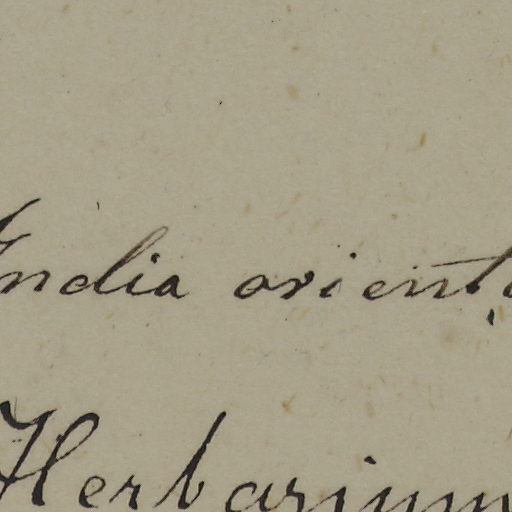 India orienta
Herbarium